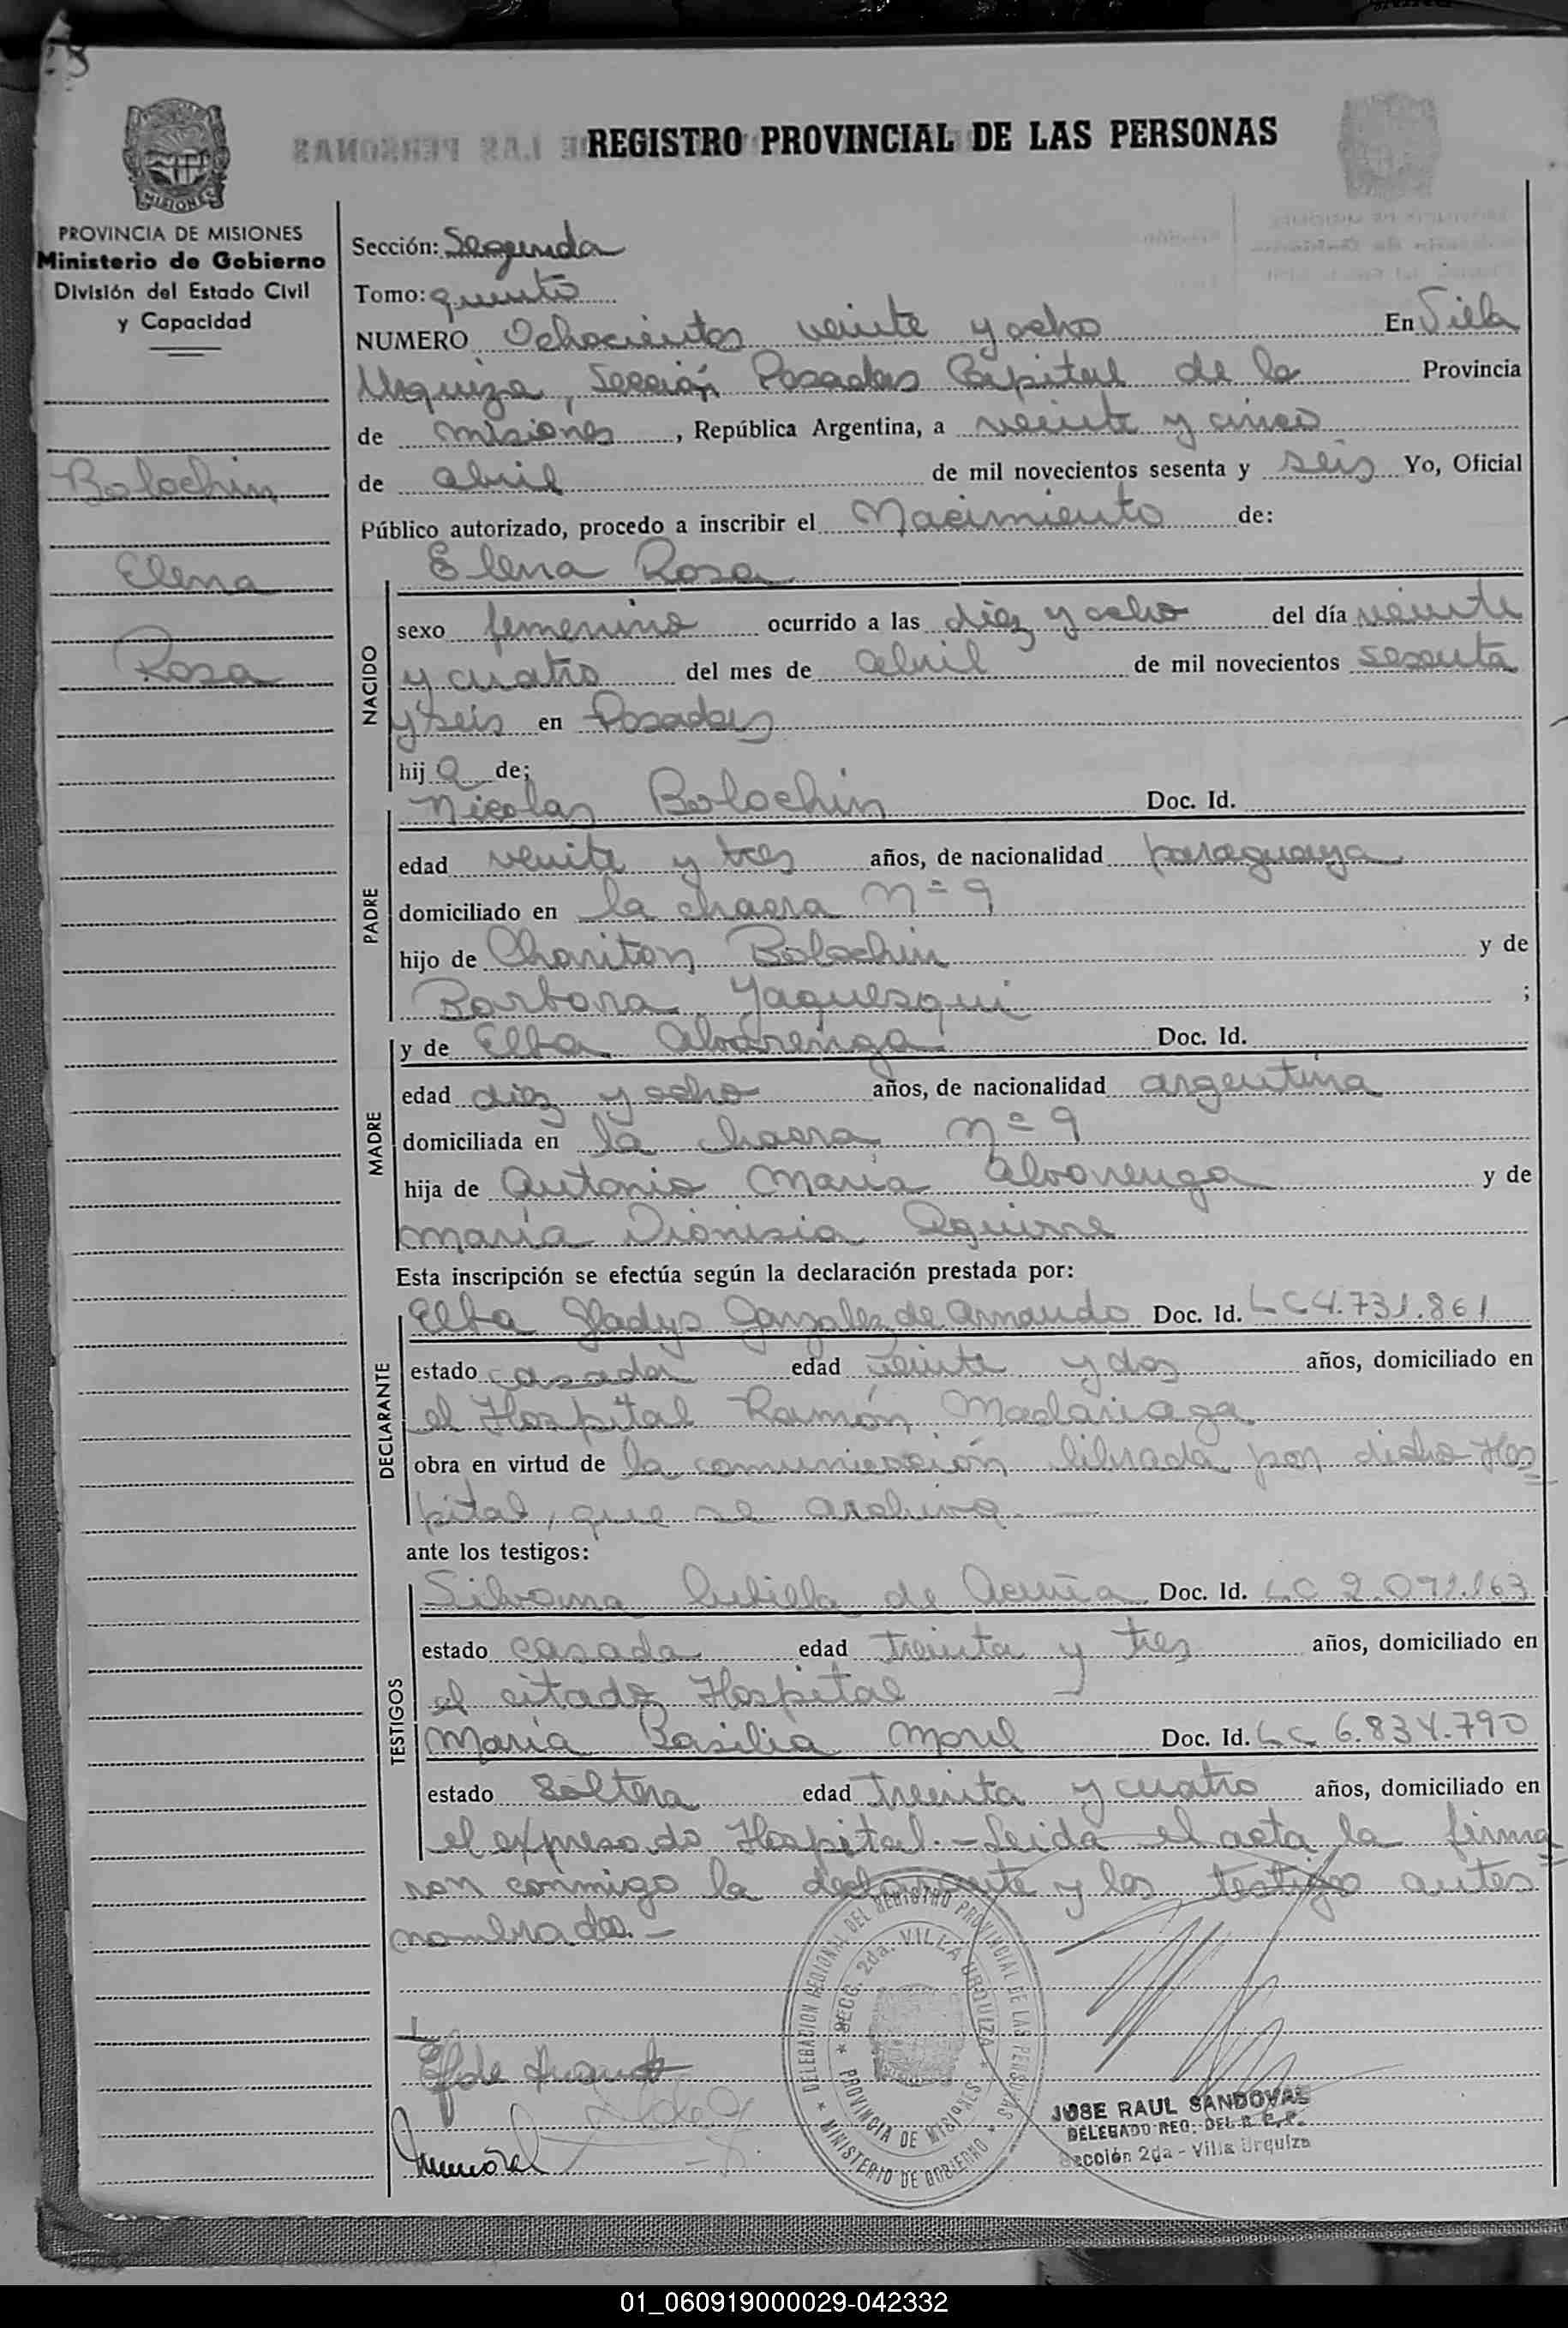 REGISTRO PROVINCIAL DE LAS PERSONAS
MISIONES
PROVINCIA DE MISIONES
Ministerio de Gobierno
División del Estado Civil
y Capacidad
Bolochin
Elena
Rosa
Sección: Segunda
Tomo: quinto
NUMERO Ochocientos veinte y ocho En Villa
Urquiza, Sección Posadas Capital de la Provincia
de misiones, República Argentina, a veinte y cinco
de abril de mil novecientos sesenta y seis Yo, Oficial
Público autorizado, procedo a inscribir el Nacimiento de:
Elena Rosa
NACIDO
sexo femenino ocurrido a las diez y ocho del día veinte
y cuatro del mes de abril de mil novecientos sesenta
y seis en Posadas
hij a de;
PADRE
Nicolas Bolochin Doc. Id.
edad veinte y tres años, de nacionalidad paraguaya
domiciliado en la chacra Nº 9
hijo de Chariton Bolochin y de
Barbara Yaquesqui ;
MADRE
y de Elba Alvarenga Doc. Id.
edad diez y ocho años, de nacionalidad argentina
domiciliada en la chacra nº 9
hija de Antonio María Alvarenga y de
María Dionisia Aguirre
Esta inscripción se efectúa según la declaración prestada por:
DECLARANTE
Elba Gladys Gonzalez de Armando Doc. Id. LC 4.731.861
estado casada edad veinte y dos años, domiciliado en
el Hospital Ramón Madariaga
obra en virtud de la comunicación librada por dicho Hos
pital, que se archiva
ante los testigos:
TESTIGOS
Silvana de Acuña Doc. Id. LC 2.092.163
estado casada edad treinta y tres años, domiciliado en
el citado Hospital
María Basilia Morel Doc. Id. LC 6.834.790
estado soltera edad treinta y cuatro años, domiciliado en
el expresado Hospital.- Leida el acta la firma
ron conmigo la declarante y los testigos antes
nombrados.-
DELEGACION REGIONAL DEL REGISTRO PROVINCIAL DE LAS PERSONAS
* SECC. 2da. VILLA URQUIZA *
PROVINCIA DE MISIONES
* MINISTERIO DE GOBIERNO *
JOSE RAUL SANDOVAL
DELEGADO REG. DEL R. C. P.
Sección 2da - Villa Urquiza
01_060919000029-042332